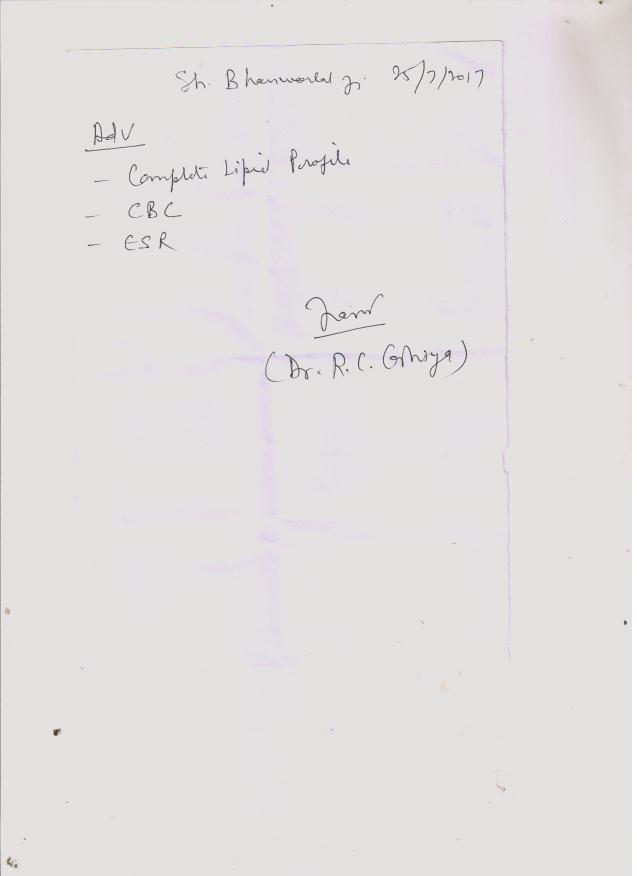 Sh. Bhanwarlal ji. 25/7/2017
Adv
- Complete Lipid Profile
- CBC
- ESR
(Dr. R. C. Ghiya)